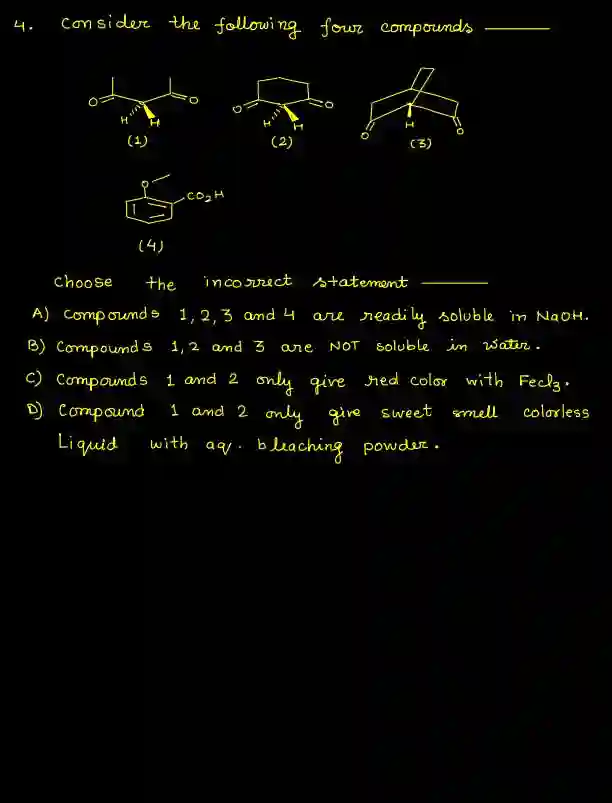 4. Consider the following four compounds ———
O O H H
(1)
O O H H
(2)
O O H
(3)
O CO2H
(4)
choose the incorrect statement ———
A) compounds 1, 2, 3 and 4 are readily soluble in NaOH.
B) Compounds 1, 2 and 3 are NOT soluble in water.
C) Compounds 1 and 2 only give red color with Fecl3.
D) Compound 1 and 2 only give sweet smell colorless
Liquid with aq. bleaching powder.